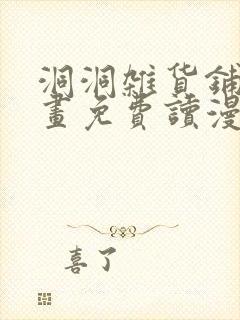 洞洞雜貨鋪
畫免費讀漫
喜了